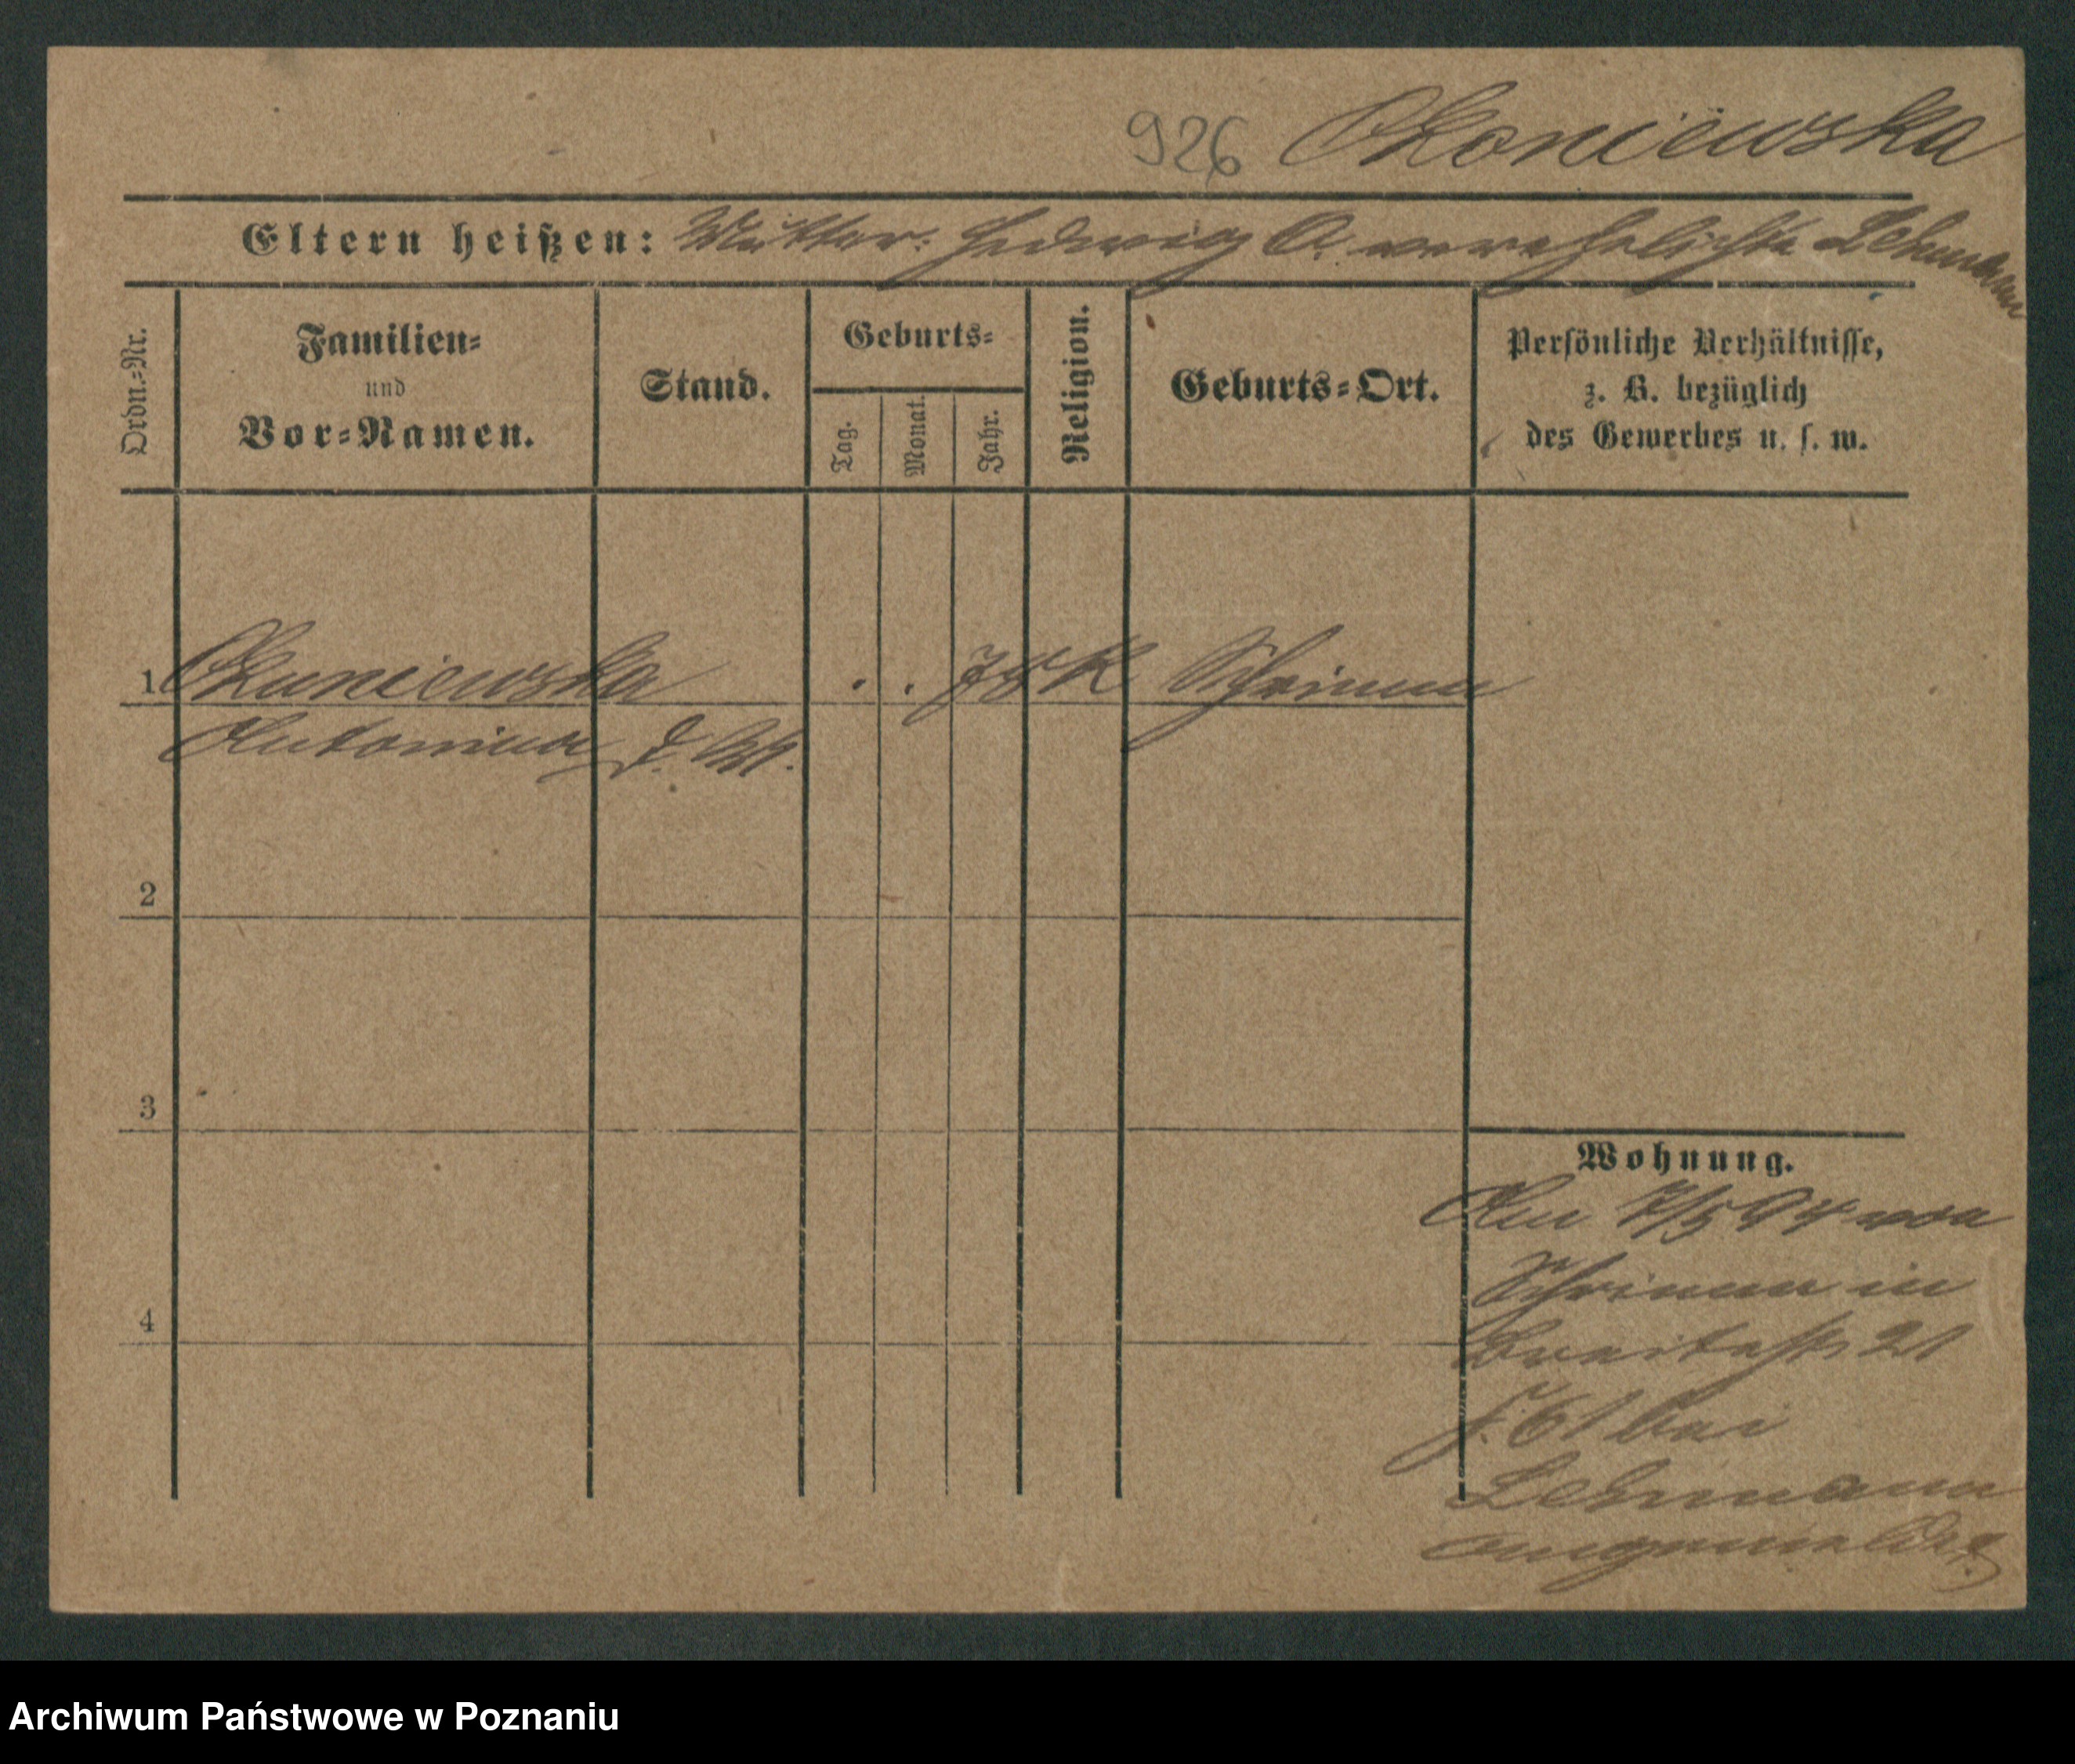 926 Okoniewska
Eltern heißen: Mutter: Hedwig O. verehelichte Lehmann
Ordn.-Nr.
Familien-
und
Vor-Namen.
Stand.
Geburts-
Tag.
Monat.
Jahr.
Religion.
Geburts-Ort.
Persönliche Verhältnisse,
z. B. bezüglich
des Gewerbes u. s. w.
1 Okuniewska . . 78 K Schrimm
Antonina
2
3
4
Wohnung.
Am 7/5 94 von
Schrimm in
Breitestr 21
bei
Lehmann
Archiwum Państwowe w Poznaniu